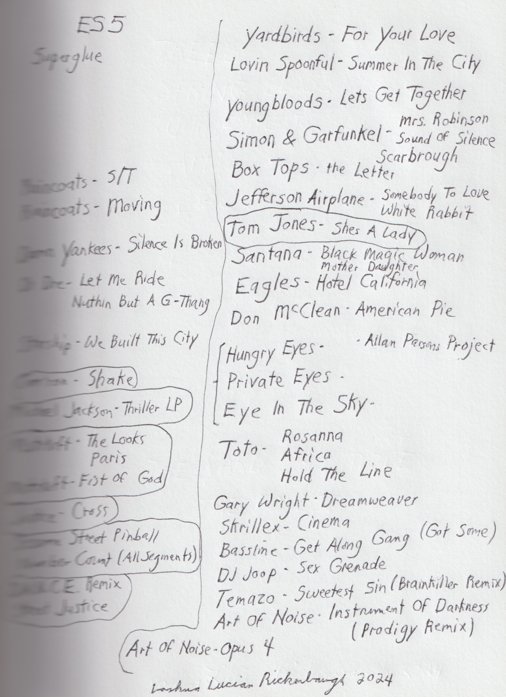 ES5
Superglue
Raincoats - S/T
Raincoats - Moving
Yankees - Silence Is Broken
Dr Dre - Let Me Ride
Nuthin But A G-Thang
Starship - We Built This City
Shake
Michael Jackson - Thriller LP
The Looks
Paris
Fist of God
Cross
Street Pinball
Number Count (All Segments)
Remix
Justice
Yardbirds - For Your Love
Lovin Spoonful - Summer In The City
Youngbloods - Lets Get Together
Mrs. Robinson
Simon & Garfunkel - Sound of Silence
Scarbrough
Box Tops - the Letter
Jefferson Airplane - Somebody To Love
White Rabbit
Tom Jones - Shes A Lady
Santana - Black Magic Woman
Mother Daughter
Eagles - Hotel California
Don McClean - American Pie
Hungry Eyes - - Allan Persons Project
Private Eyes -
Eye In The Sky -
Toto - Rosanna
Africa
Hold The Line
Gary Wright - Dreamweaver
Skrillex - Cinema
Bassline - Get Along Gang (Got Some)
DJ Joop - Sex Grenade
Temazo - Sweetest Sin (Brainkiller Remix)
Art Of Noise - Instrument Of Darkness
(Prodigy Remix)
Art Of Noise - Opus 4
Joshua Lucian Rickenbaugh 2024